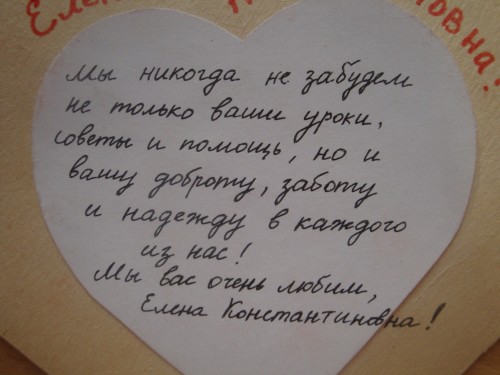 Мы никогда не забудем
не только ваши уроки,
советы и помощь, но и
вашу доброту, заботу
и надежду в каждого
из нас!
Мы вас очень любим,
Елена Константиновна!